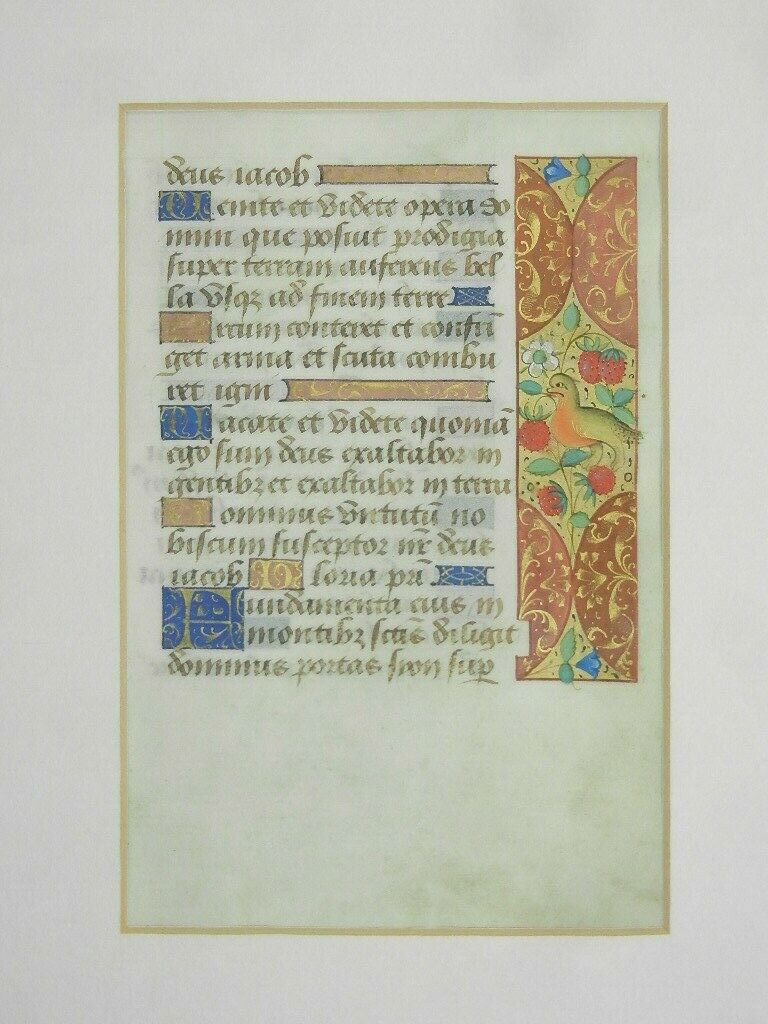 deus iacob
Uenite et videte opera do
mini que posuit prodigia
super terram auferens bel
la usqz ad finem terre
Arcum conteret et confrī
get arma et scuta combu
ret igni
Uacate et videte quoniā
ego sum deus exaltabor in
gentibz et exaltabor in terra
Dominus virtutū no
biscum susceptor nr̄ deus
iacob Gloria pr̄i
Fundamenta eius in
montibz sctīs diligit
dominus portas sion sup